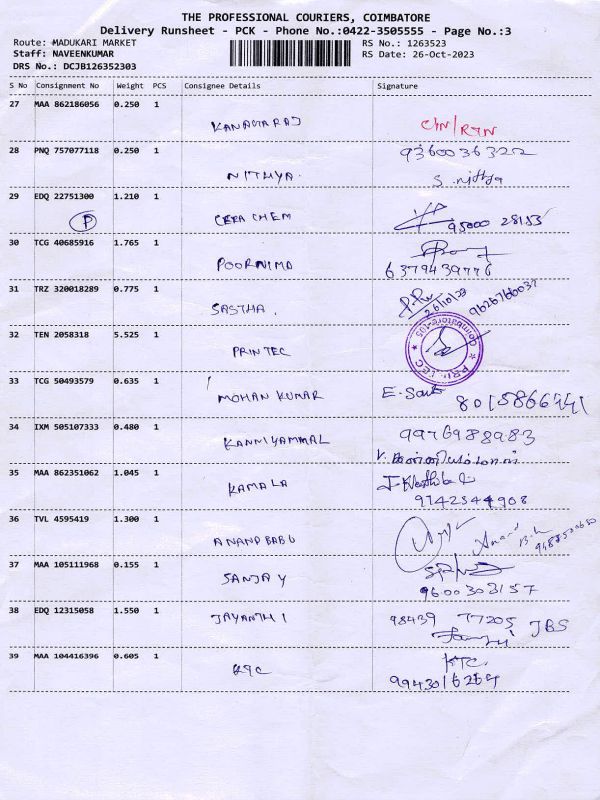 THE PROFESSIONAL COURIERS, COIMBATORE
Delivery Runsheet - PCK - Phone No.:0422-3505555 - Page No.:3
Route: MADUKARI MARKET RS No.: 1263523
Staff: NAVEENKUMAR RS Date: 26-Oct-2023
DRS No.: DCJB126352303
S No Consignment No Weight PCS Consignee Details Signature
27 MAA 862186056 0.250 1
KANAGARAJ
28 PNQ 757077118 0.250 1 9360036322
NITHYA. S. nithya
29 EDQ 22751300 1.210 1
P CERA CHEM 95000 28155
30 TCG 40685916 1.765 1
POORNIMA 6379439776
31 TRZ 320018289 0.775 1
SASTHA. 26/10/23 9626766032
32 TEN 2058318 5.525 1
PRINTEC
33 TCG 50493579 0.635 1
MOHAN KUMAR 8015866441
34 IXM 505107333 0.480 1 9976988983
KANNIYAMMAL
35 MAA 862351062 1.045 1
KAMALA 9742544908
36 TVL 4595419 1.300 1
ANAND BABU Anand
37 MAA 105111968 0.155 1
SANJAY 9600303157
38 EDQ 12315058 1.550 1 98439 77205 JBS
JAYANTHI
39 MAA 104416396 0.605 1 KTC.
KTC 9943016264